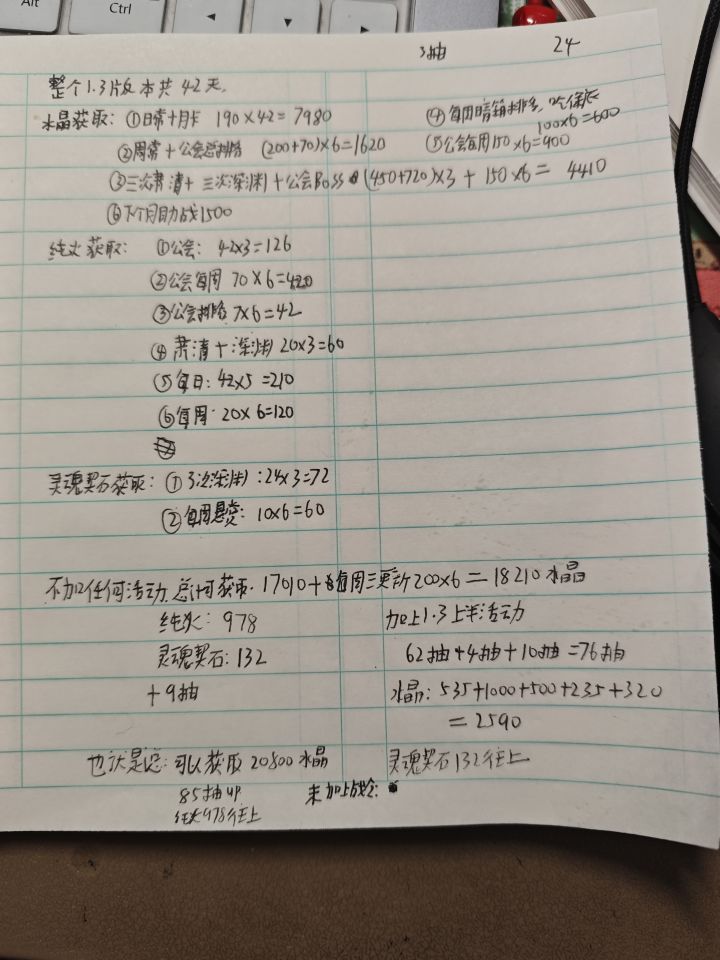 Alt
Ctrl
3抽 24
整个1.3版本共42天.
水晶获取: ①日常+月卡 190×42=7980
②周常+公会总排给 (200+70)×6=1620
③三次肃清+三次深渊+公会Boss (450+720)×3+150×6= 4410
⑥下个月助战1500
④每周暗箱排名, 吃保底
100×6=600
⑤公会每周150×6=900
纯火获取: ①公会: 42×3=126
②公会每周 70×6=420
③公会排给 7×6=42
④肃清+深渊 20×3=60
⑤每日: 42×5=210
⑥每周. 20×6=120
灵魂契石获取: ①3次深渊: 24×3=72
②每周悬赏: 10×6=60
不加任何活动, 总计可获取. 17010+每周三更新200×6=18210水晶
纯火: 978
灵魂契石: 132
+9抽
加上1.3上半活动
62抽+4抽+10抽=76抽
水晶: 535+1000+500+235+320
=2590
灵魂契石132往上
也就是总: 可以获取20800水晶
85抽up
纯火978往上
未加上战令: